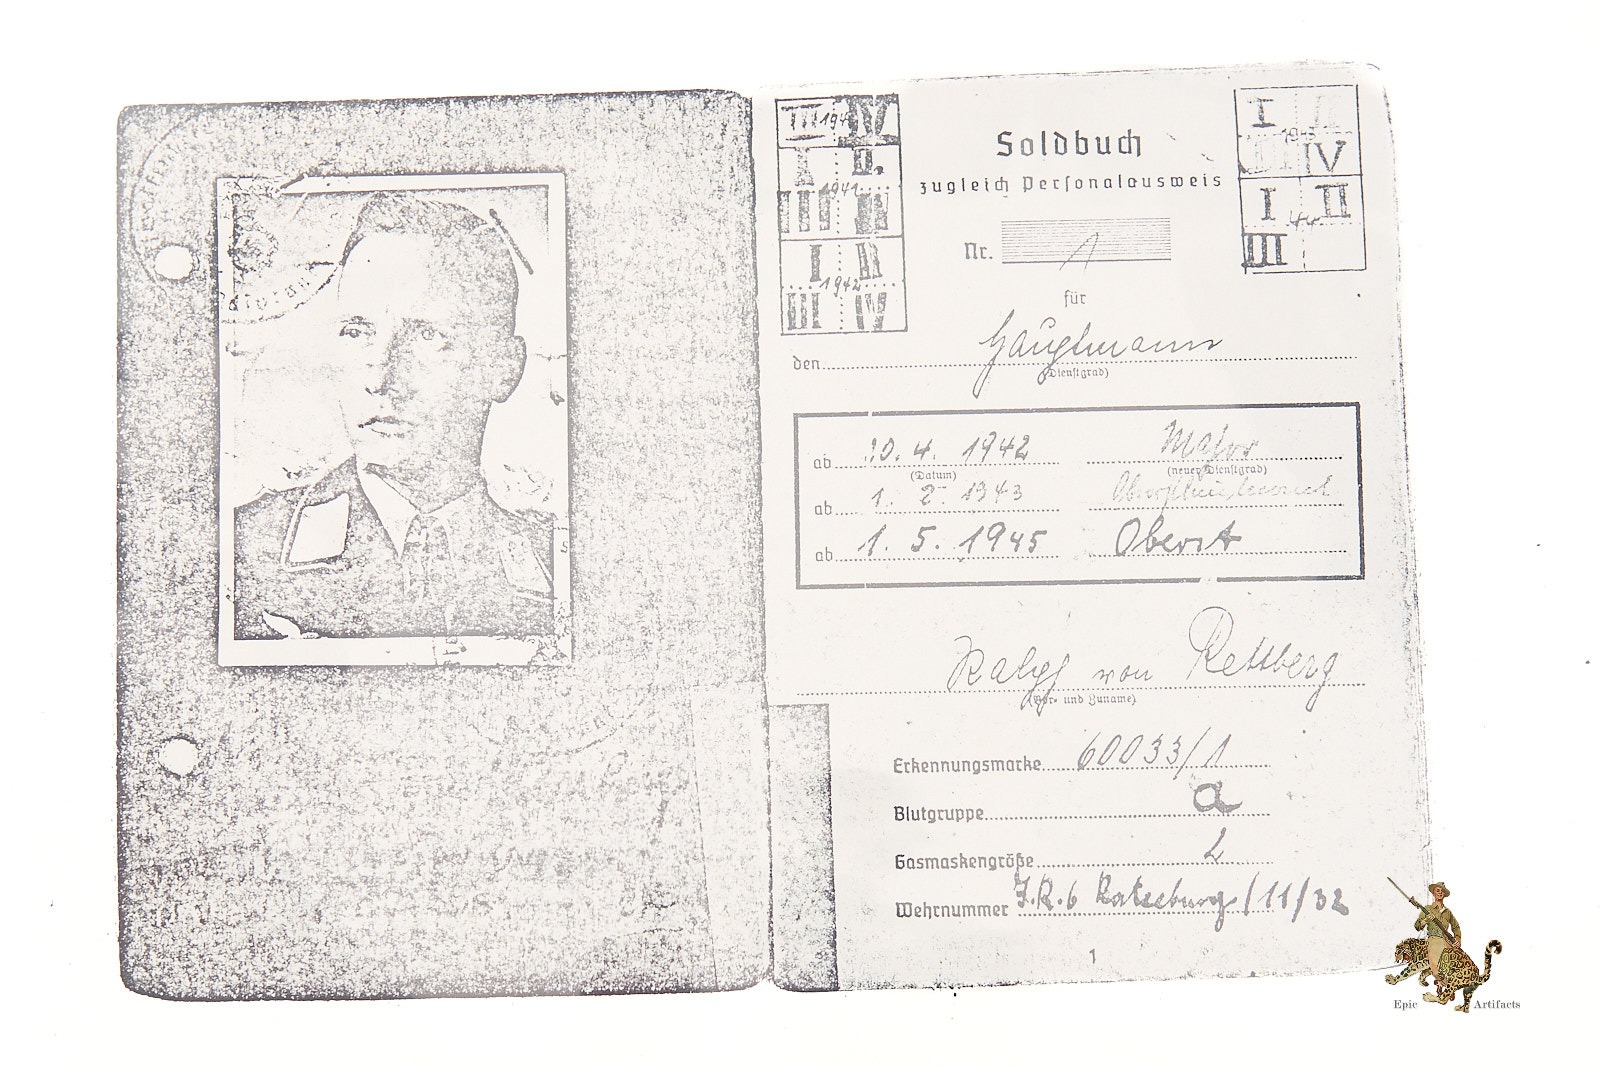 III 1941 IV
I II.
1941
III IV
I II
1942
III IV
I II
1943
III IV
I II
44
III
Soldbuch
zugleich Personalausweis
Nr. 1
für
den Hauptmann
(Dienstgrad)
ab 10. 4. 1942 Major
(Datum) (neuer Dienstgrad)
ab 1. 2. 1943 Oberstleutnant
ab 1. 5. 1945 Oberst
Ralph von Rettberg
(Vor- und Zuname)
Erkennungsmarke 60033/1
Blutgruppe a
Gasmaskengröße 2
Wehrnummer J.R.6 Ratzeburg/11/32
1
Epic Artifacts